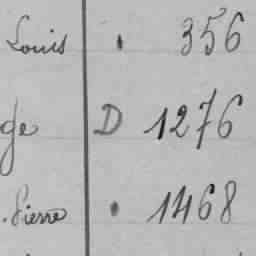 Louis . 356
ge D 1276
. Pierre . 1468